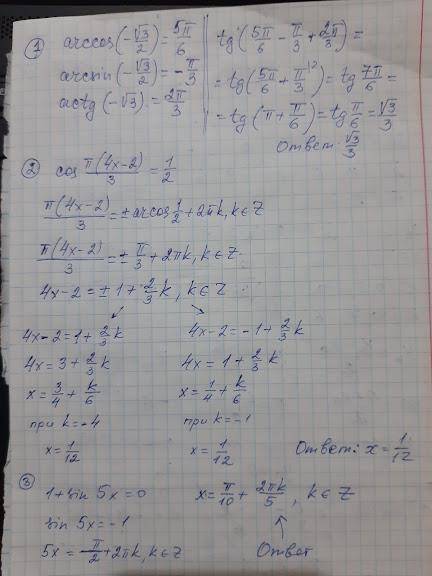 ① arccos(-√3/2) = 5π/6
arcsin(-√3/2) = -π/3
actg(-√3) = 2π/3
tg(5π/6 - π/3 + 2π/3) =
= tg(5π/6 + π/3^12) = tg 7π/6 =
= tg(π + π/6) = tg π/6 = √3/3
Ответ: √3/3
② cos π(4x-2)/3 = 1/2
π(4x-2)/3 = ± arcos 1/2 + 2πk, k∈Z
π(4x-2)/3 = ± π/3 + 2πk, k∈Z
4x-2 = ± 1 + 2/3 k, k∈Z
4x-2 = 1 + 2/3 k
4x = 3 + 2/3 k
x = 3/4 + k/6
при k = -4
x = 1/12
4x-2 = -1 + 2/3 k
4x = 1 + 2/3 k
x = 1/4 + k/6
при k = -1
x = 1/12
Ответ: x = 1/12
③ 1 + sin 5x = 0
sin 5x = -1
5x = -π/2 + 2πk, k∈Z
x = π/10 + 2πk/5, k∈Z
Ответ